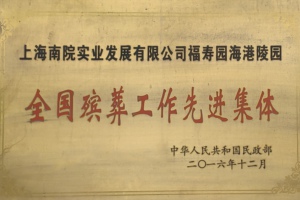 上海南院实业发展有限公司福寿园海港陵园
全国殡葬工作先进集体
中华人民共和国民政部
二〇一六年十二月